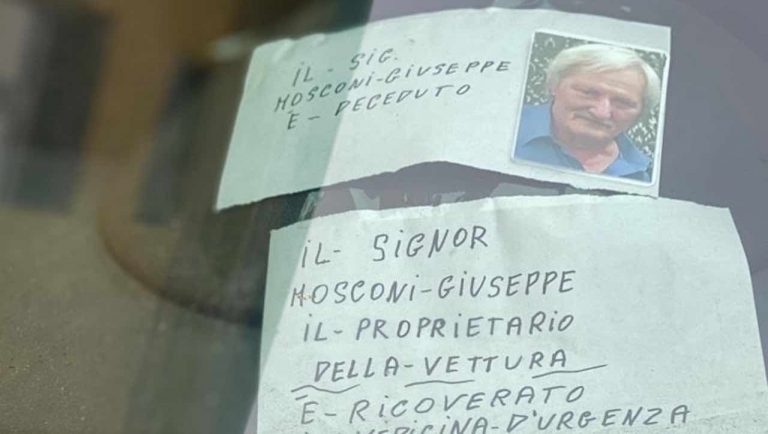 iL - SIG.
MOSCONi-GiUSEPPE
E - DECEDUTO
iL - SiGNOR
MOSCONi-GiUSEPPE
iL - PROPRiETARiO
DELLA-VETTURA
E - RiCOVERATO
MEDICINA-D'URGENZA